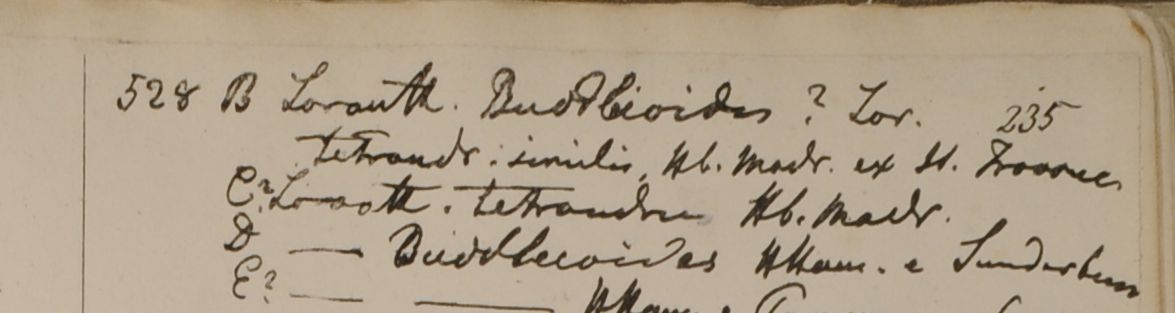 528 B Loranth. Buddleioides ? Lor. 235
tetrandr. similis, Hb. Madr. ex St.
C? Loranth. tetrandrus Hb. Madr.
D — Buddleioides HHam. e Sunderbun
E? — — HHam. e